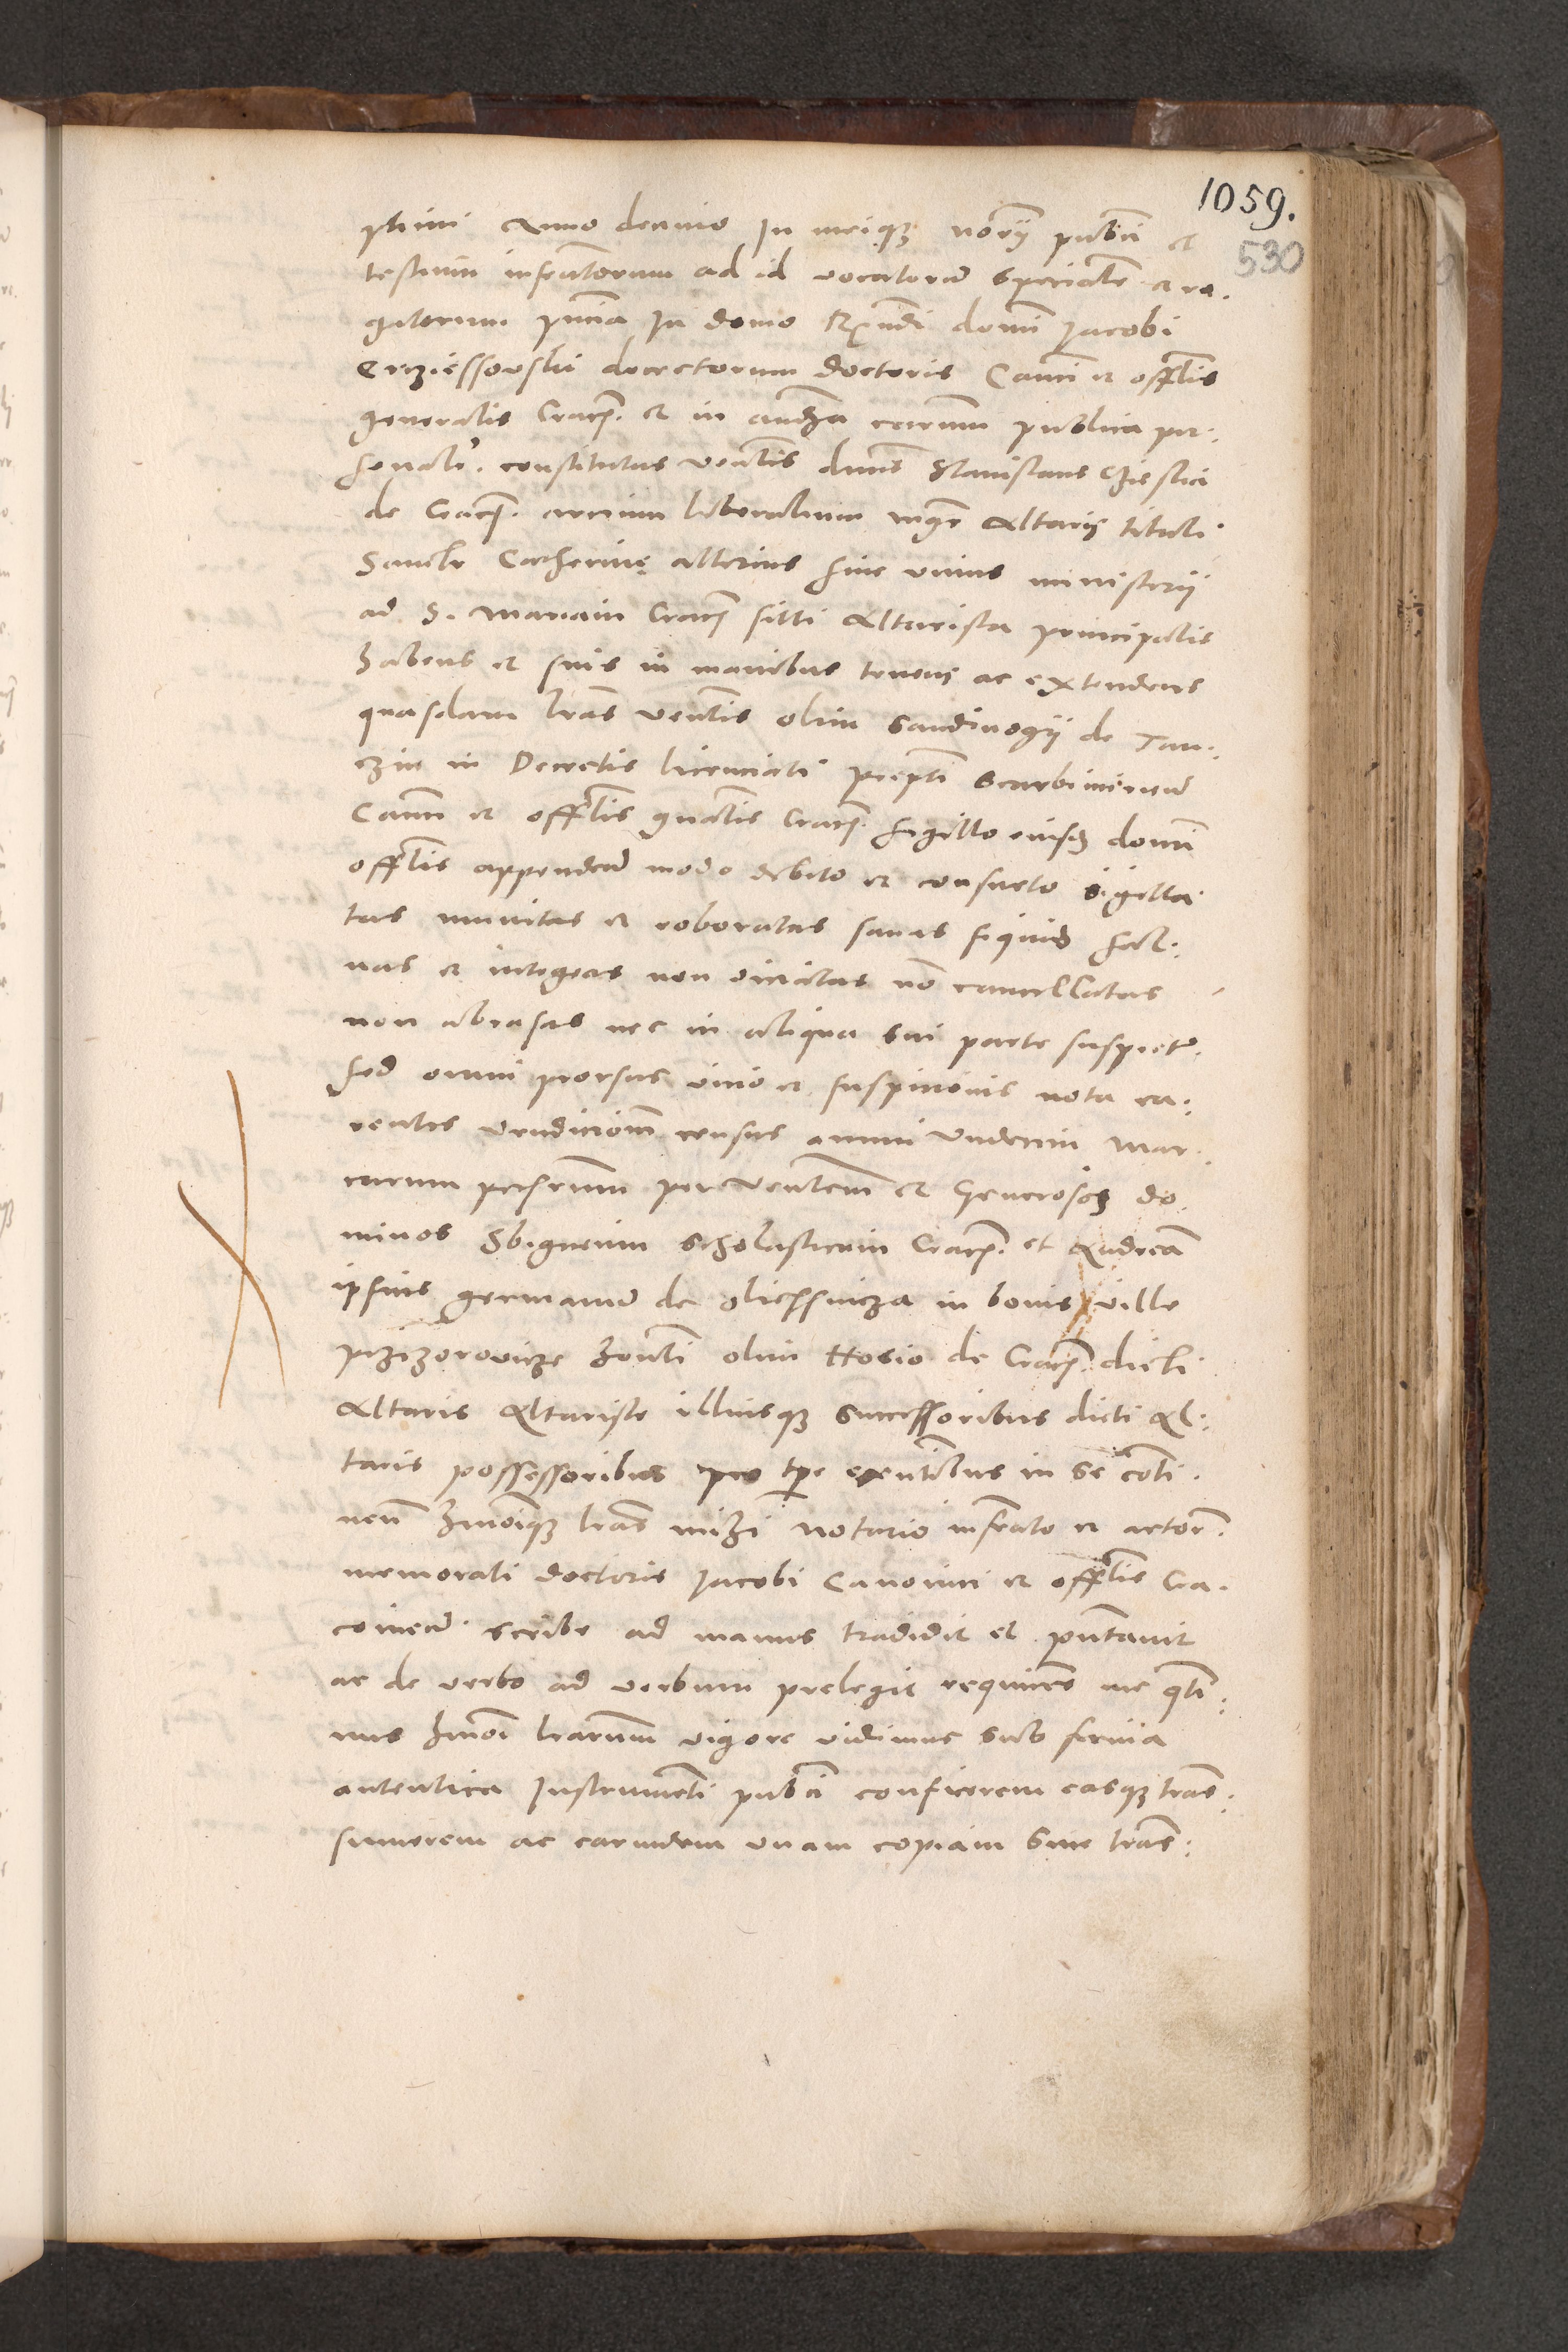 1059.
530
ptimi Anno decimo In meiqz norij publici et
testium infrascriptorum ad id vocatorum specialiter et ro.
gatorum pncia In domo Rxndi domi Jacobi
Erziessowski decretorum doctoris Canci et offlis
generalis Cracn. et in audza rerum publica per.
sonalr. constitutus venlis dnus Stanislaus Cziesslia
de Cracn. arcium liberalium mgr Altaris tituli
Sancte Catherinę alterius sine vnius ministerij
ad S. Mariam Cracn siti Altarista principalis
habens et suis in manibus tenens ac extendens
quasdam lras venlis olim Sandivogij de Tan.
czin in Decretis licenciati prepti Scarbimiriens
Canci et offlis gnalis Cracn. sigillo eiusdz domi
offlis appenden modo debito et consueto sigilla
tas munitas et roboratas sanas siquidz sal.
uas et integras non viciatas no cancellatas
non abrasas nec in aliqua sui parte suspectas.
sed omni prorsus vicio et suspicionis nota ca.
rentes vendicionem census annui vndecim mar.
carum pecunm per Venlem et Generosos do
minos Sbigneum Scholasticum Cracn. et Andream
ipsius germanum de Olieschnicza in bonis ville
przizorovicze honli olim Hosio de Cracn dicti
Altaris Altariste illiusqz successoribus dicti Al.
taris possessoribus pro tpe exntibus in se conti.
nen hmoiqz lras mihi Notario infrato et actor.
memorati doctoris Jacobi Canonici et offlis Cra.
couien. scribe ad manus tradidit et pntauit
ac de verbo ad verbum prelegit requirens me qti
nus hmoi lrarum vigore vidimus sub forma
autentica Instrumenti publici conficerem easqz trans.
sumerem ac earundem vnam copiam siue trans.